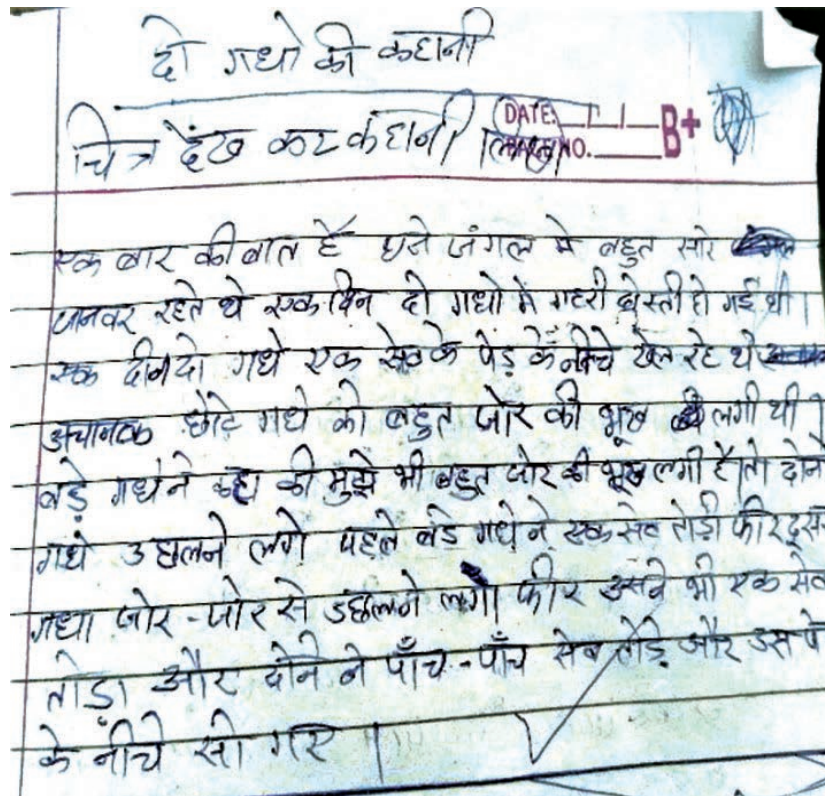 दो गधो की कहानी
DATE: B+
चित्र देंख कर कंहानी
NO.
एक बार की बात हैं घने जंगल मे बहुत सारे
जानवर रहते थे एक दिन दो गधो मे गहरी दोस्ती हो गई थी।
एक दीन दो गधे एक सेब के पेड़ के नीचे खेल रहे थे
अचानक छोटे गधे को बहुत जोर की भूख लगी थी।
बड़े गधे ने कहा की मुझे भी बहुत जोर की भूख लगी है। तो दोने
गधे उछालने लगे पहले बडे गधे ने एक सेब तोड़ी फीर दुस
गधा जोर-जोर से उछलने लगा फीर उसने भी एक सेब
तोड़ा और दोने ने पाँच-पाँच सेब तोड़े और उस पे
के नीचे सो गए।